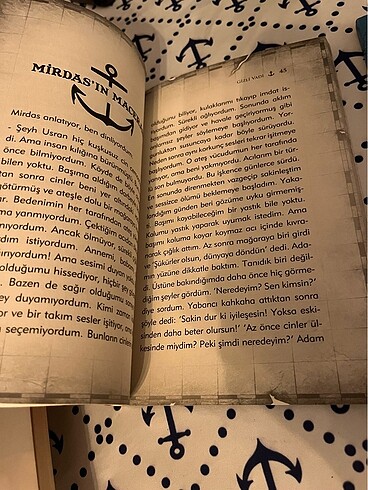 MİRDAS'IN MACE
Mirdas anlatıyor, ben dinliyordum.
- Şeyh Usran hiç kuşkusuz
di. Ama insan kılığına bürün
önce bilmiyordum. Böyle
bilen yoktu. Başıma aldığım
tan sonra cinler beni yer altına
götürmüş ve ateşle dolu bir mağara
ar. Bedenimin her tarafından
ma yanmıyordum. Çektiğim
ordum. Ancak ölmüyor, sürekli
rdım istiyordum. Annemi, bab
ınıyordum! Ama sesimi duyan
olduğumu hissediyor, hiçbir şey
. Bazen de sağır olduğumu
ey duyamıyordum. Kimi zama
or ve bir takım sesler işitiyor, ama
seçemiyordum. Bunların cinler
GİZLİ VADİ 45
olduğunu biliyor, kulaklarımı tıkayıp imdat is-
tiyordum. Sürekli ağlıyordum. Sonunda aklım
başımdan gidiyor ve havale geçiriyormuş gibi
anlamsız şeyler söylemeye başlıyordum. Yor-
gunluktan susuncaya kadar böyle sürüyordu.
Birden sonra aynı korkunç sesleri tekrar işitmeye
başlıyordum. O ateş vücudumun her tarafında
yanıyor, ama beni yakmıyordu. Acıların bir tür-
lü son bulmuyordu. Bu işkence günlerce sürdü.
En sonunda direnmekten vazgeçip sakinleştim
ve sessizce ölümü beklemeye başladım. Yaka-
landığım günden beri gözüme uyku girmemiş-
ti. Başımı koyabileceğim bir yastık bile yoktu.
Kolumu yastık yaparak uyumak istedim. Ama
başımı koluma koyar koymaz acı içinde kıvra-
narak çığlık attım. Az sonra mağaraya biri girdi
ve 'Şükürler olsun, dünyaya döndün!' dedi. Ada-
mın yüzüne dikkatle baktım. Tanıdık biri değil-
di. Üstüne bakındığımda daha önce hiç görme-
diğim şeyler gördüm. 'Neredeyim? Sen kimsin?'
diye sordum. Yabancı kahkaha attıktan sonra
şöyle dedi: 'Sakin dur ki iyileşesin! Yoksa eski-
sinden daha beter olursun!' 'Az önce cinler ül-
kesinde miydim? Peki şimdi neredeyim?' Adam